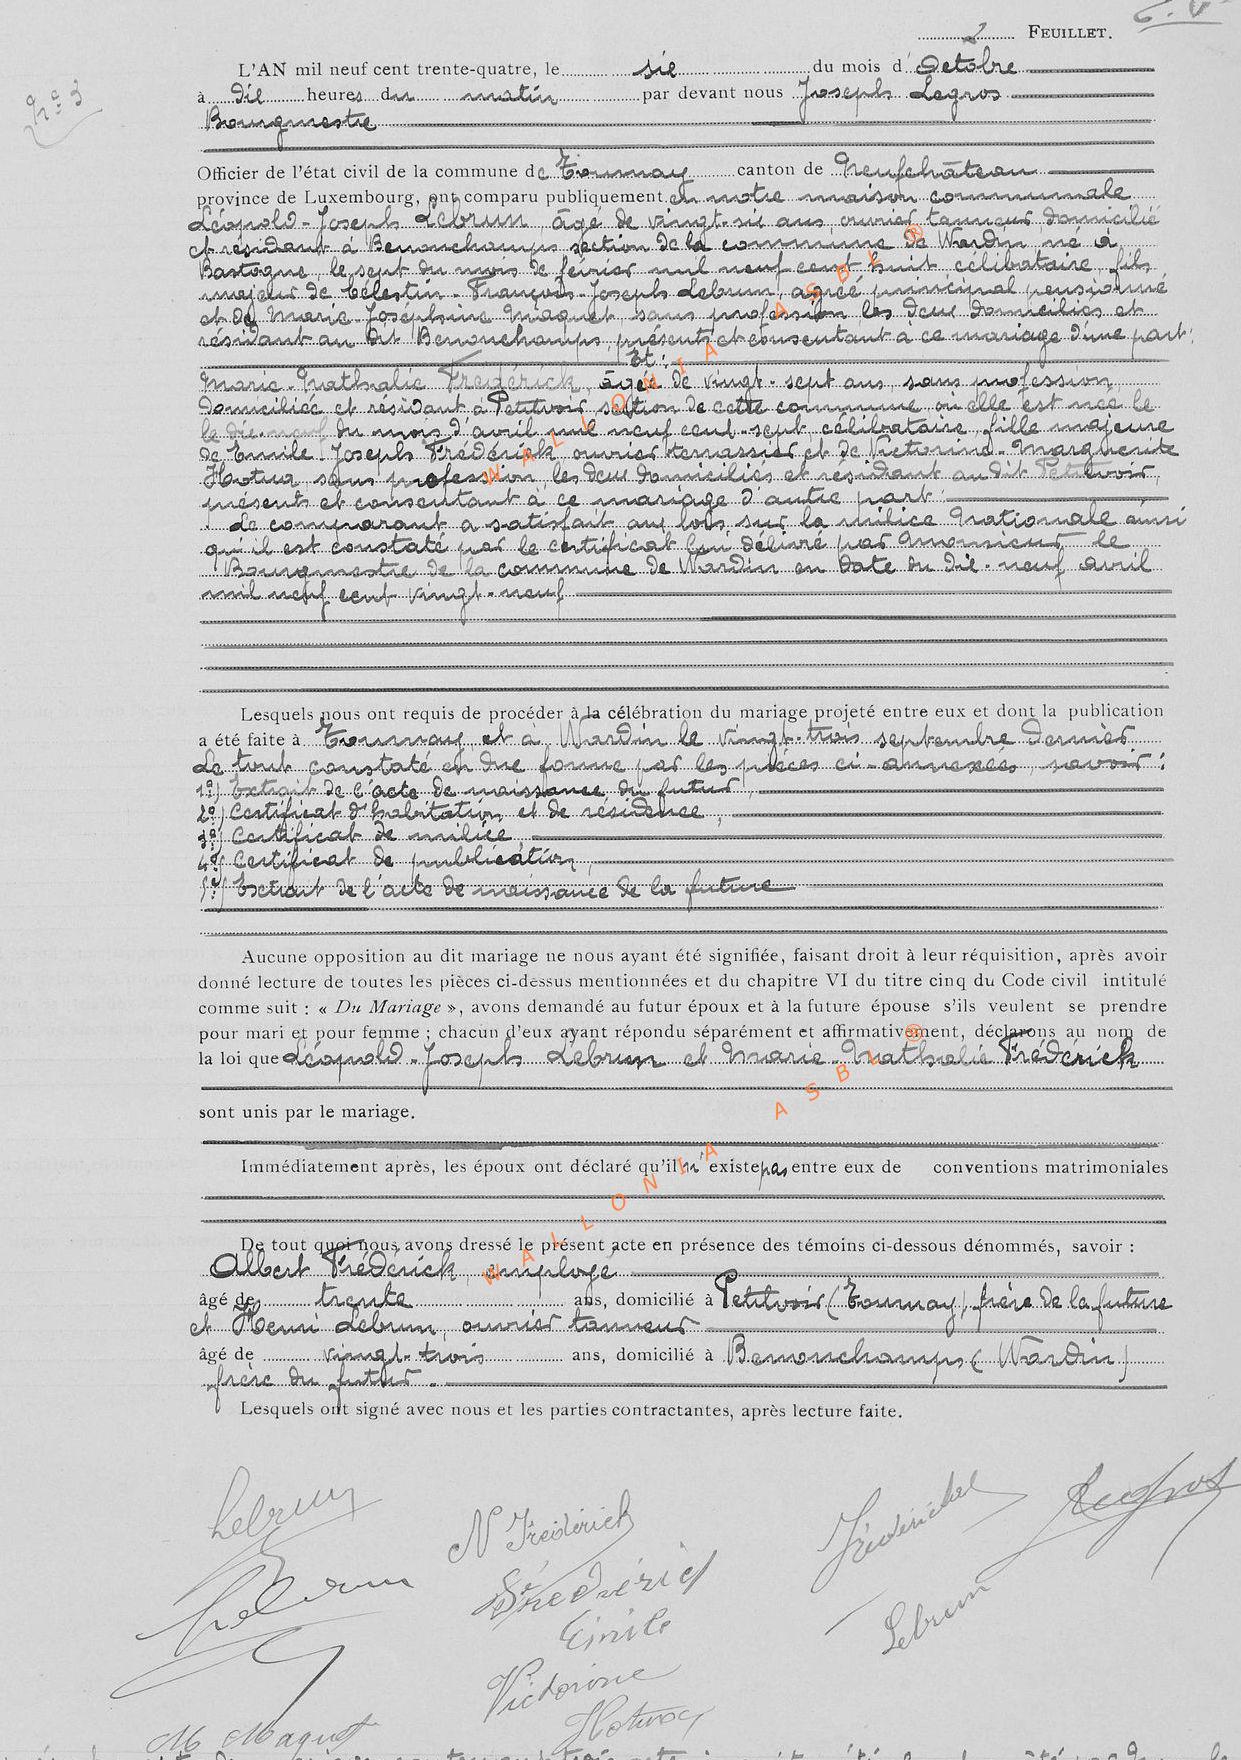 2 FEUILLET.
N° 3
L'AN mil neuf cent trente-quatre, le six du mois d'Octobre
à dix heures du matin par devant nous Joseph Legros
Bourgmestre
Officier de l'état civil de la commune de Tournay canton de Neufchâteau
province de Luxembourg, ont comparu publiquement en notre maison communale
Léopold-Joseph Lebrun, âgé de vingt-six ans, ouvrier tanneur domicilié
et résidant à Benonchamps section de la commune de Wardin né à
Bastogne, le sept du mois de février mil neuf cent huit célibataire, fils
majeur de Célestin-François-Joseph Lebrun, agréé principal pensionné
et de Marie-Joséphine Maquet sans profession les deux domiciliés et
résidant au dit Benonchamps, présents et consentant à ce mariage d'une part;
Et:
Marie-Nathalie Frédérick, âgée de vingt-sept ans, sans profession
domiciliée et résidant à Petitvoir, section de cette commune où elle est née le
le dix-neuf du mois d'avril mil neuf cent sept, célibataire, fille majeure
de Emile-Joseph Frédérick ouvrier terrassier et de Victorine-Marguerite
Hotua sans profession, les deux domiciliés et résidant au dit Petitvoir,
présents et consentant à ce mariage d'autre part.
Le comparant a satisfait aux lois sur la milice Nationale ainsi
qu'il est constaté par le certificat lui délivré par Monsieur le
Bourgmestre de la commune de Wardin en date du dix-neuf avril
mil neuf cent vingt-neuf
Lesquels nous ont requis de procéder à la célébration du mariage projeté entre eux et dont la publication
a été faite à Tournay et à Wardin le vingt-trois septembre dernier
Le tout constaté en due forme par les pièces ci-annexées, savoir:
1°) Extrait de l'acte de naissance du futur,
2°) Certificat d'habitation et de résidence,
3°) Certificat de milice,
4°) Certificat de publication,
5°) Extrait de l'acte de naissance de la future
Aucune opposition au dit mariage ne nous ayant été signifiée, faisant droit à leur réquisition, après avoir
donné lecture de toutes les pièces ci-dessus mentionnées et du chapitre VI du titre cinq du Code civil intitulé
comme suit : « Du Mariage », avons demandé au futur époux et à la future épouse s'ils veulent se prendre
pour mari et pour femme ; chacun d'eux ayant répondu séparément et affirmativement, déclarons au nom de
la loi que Léopold-Joseph Lebrun et Marie-Nathalie Frédérick
sont unis par le mariage.
Immédiatement après, les époux ont déclaré qu'il n'existe pas entre eux de conventions matrimoniales
De tout quoi nous avons dressé le présent acte en présence des témoins ci-dessous dénommés, savoir :
Albert Frédérick, employé
âgé de trente ans, domicilié à Petitvoir (Tournay) frère de la future
et Henri Lebrun, ouvrier tanneur
âgé de vingt-trois ans, domicilié à Benonchamps (Wardin)
frère du futur.
Lesquels ont signé avec nous et les parties contractantes, après lecture faite.
Lebrun
N Frédérick
Legros
Lebrun
Frédérick
Emile
Lebrun
Victorine
M Maquet
WALLONIA ASBL ®
WALLONIA ASBL ®